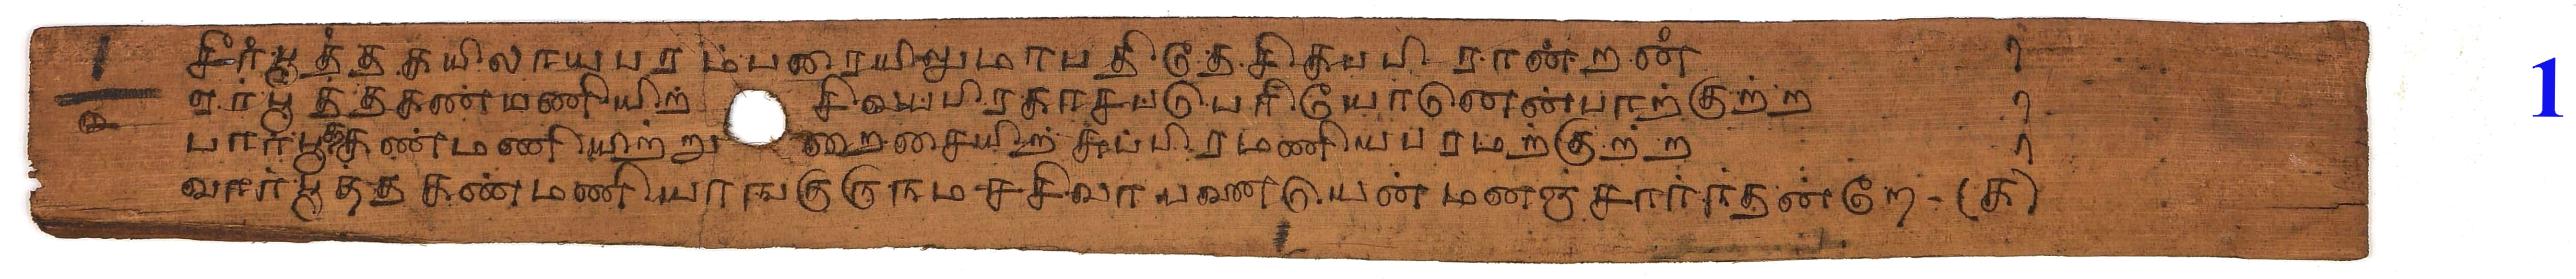 சீர்பூத்த கயிலாயபரம்பரையிலுமாபதிதேசிகபபிரான்றன்
ஏர்பூத்தகண்மணியிற் சிவப்பிரகாசப்டுபரியோடுனென்பாற்குற்ற
பார்பூத்தகண்மணியிற்று றைசையிற் சுப்பிரமணியபரமற்குற்ற
வார்பூத்த கண்மணியாங்குருநமசசிவாய மனஞ் சார்ந்தன்றே - (க)
1